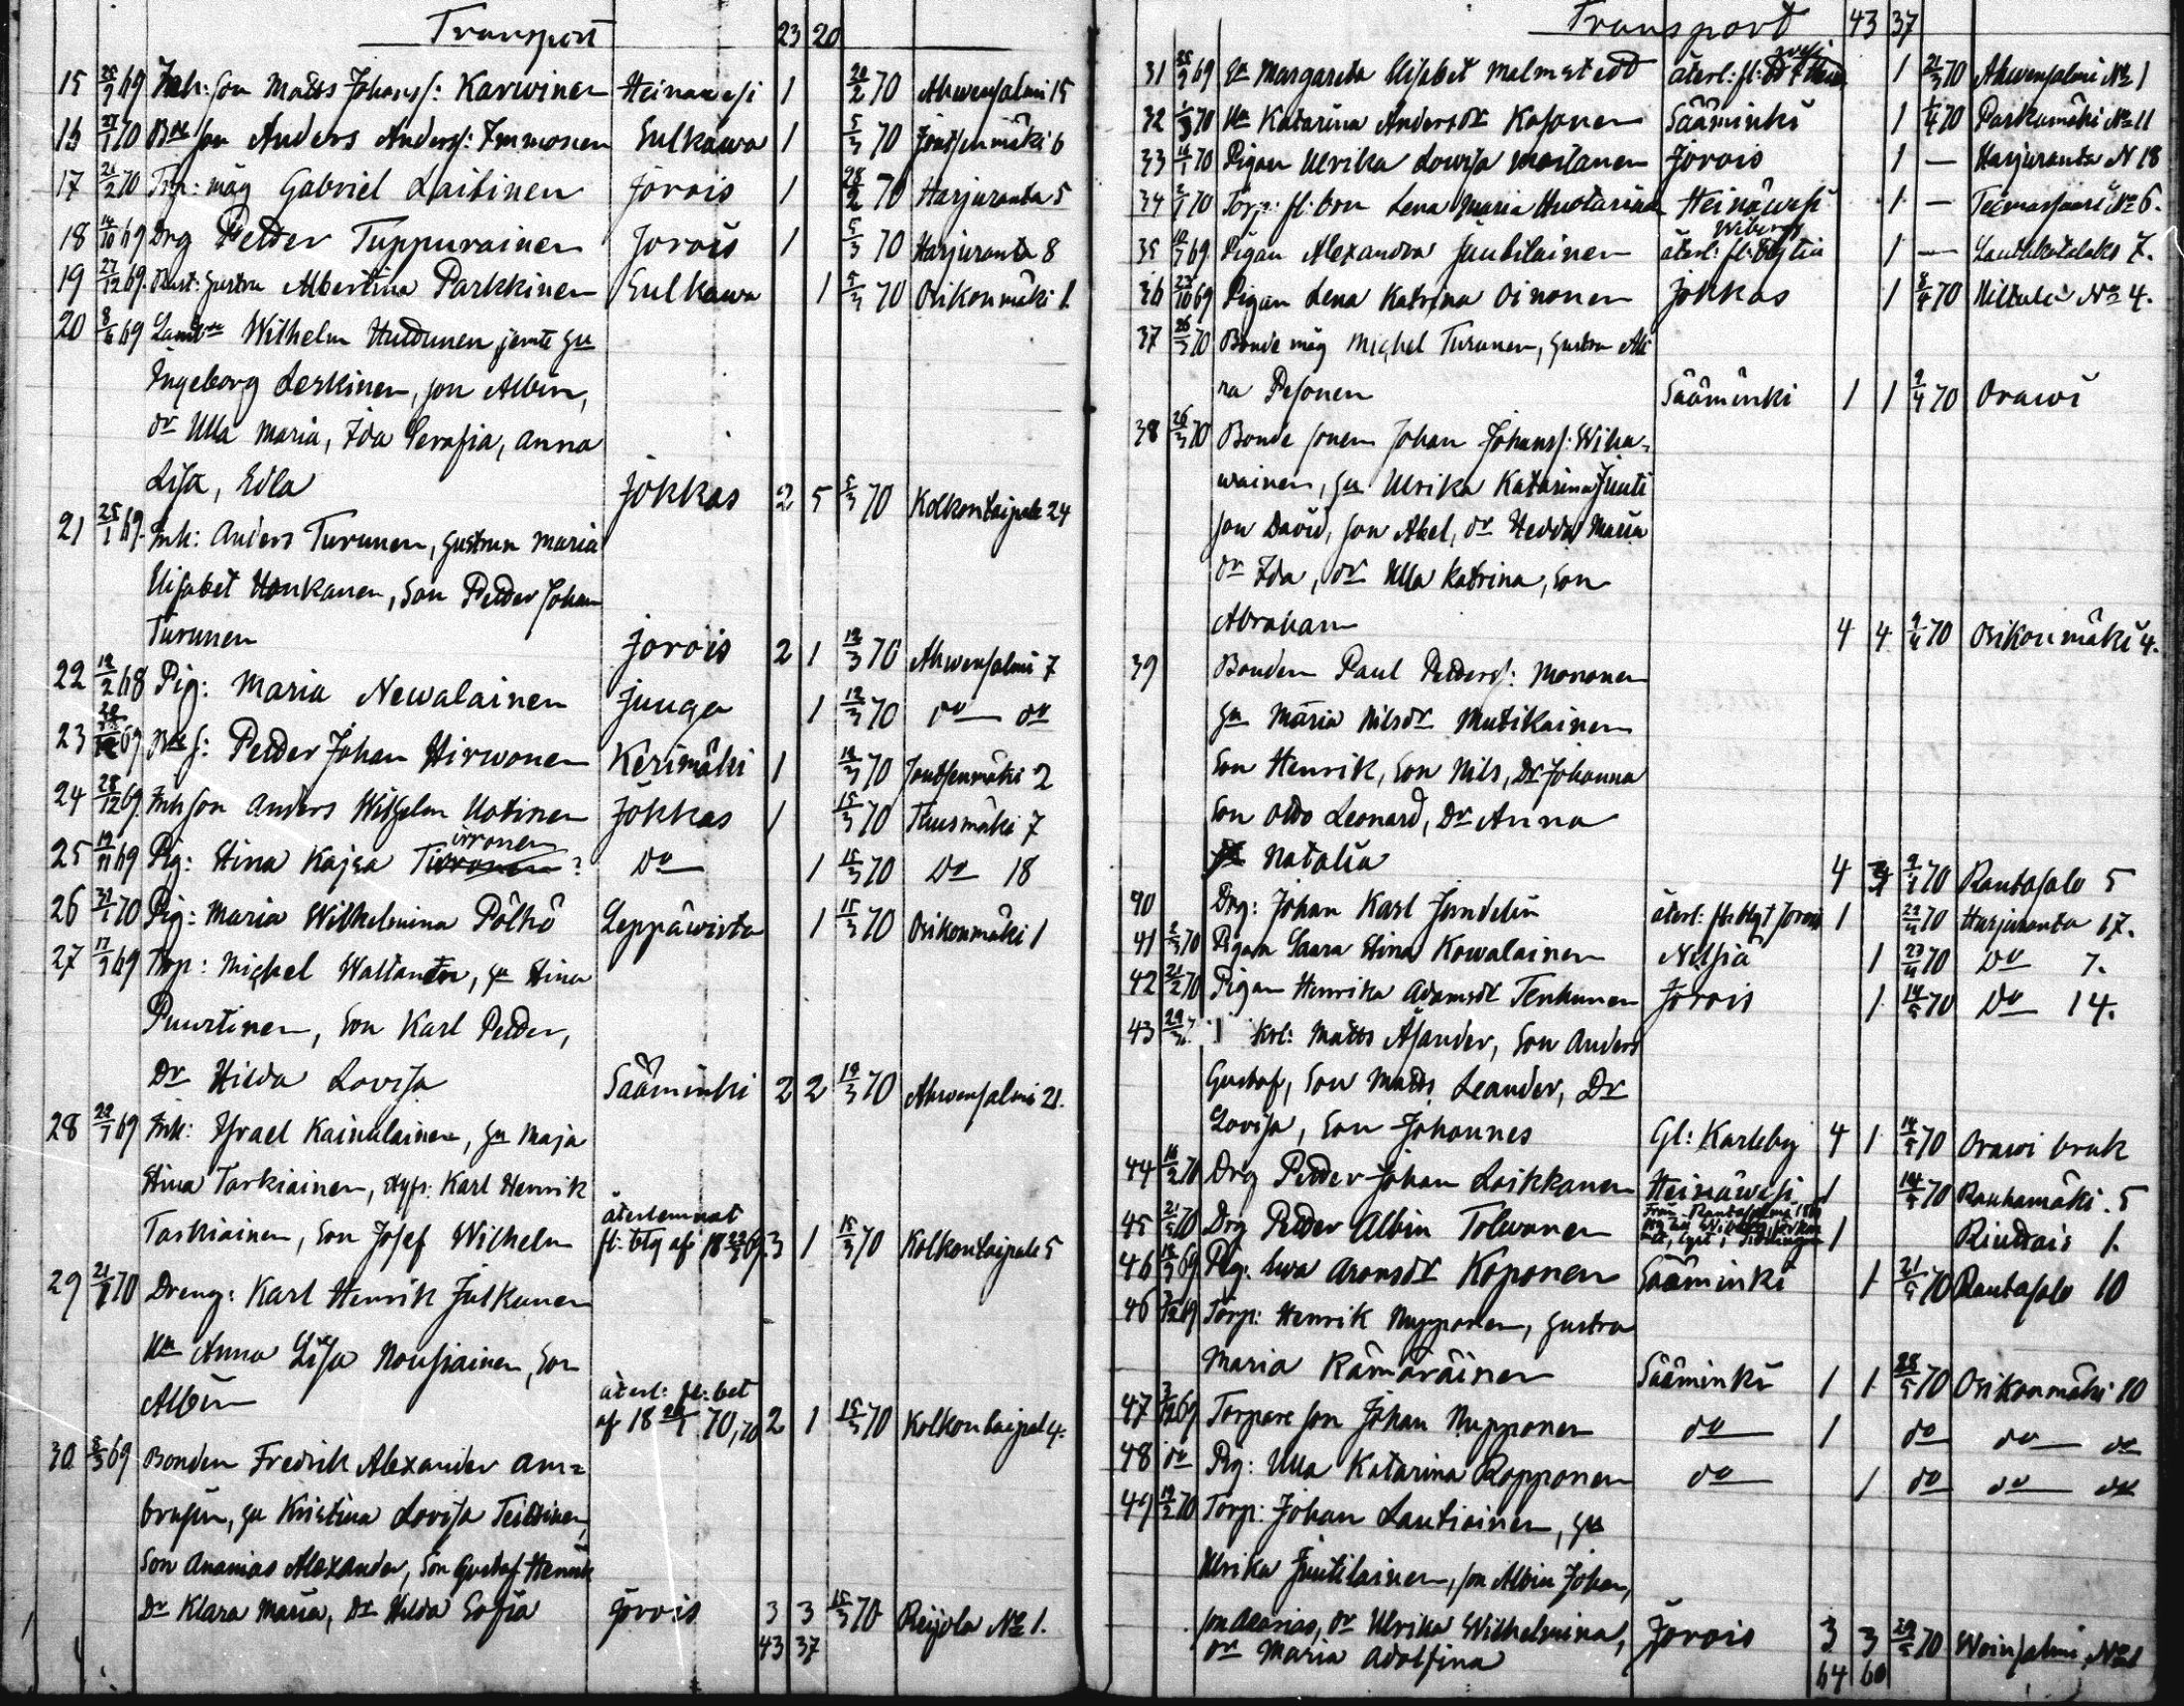 Transport 23 20
15 25/9 69 Inh: son Matts Johanss: Karwinen Heinäwesi 1 20/2 70 Ahwensalmi 15
16 27/1 70 Bde son Anders Anderss: Immonen Sulkawa 1 5/3 70 Joutsenmäki 6
17 21/2 70 Trp: måg Gabriel Laitinen Jorois 1 28/2 70 Harjuranta 5
18 14/10 69 Drg Petter Tuppurainen Jorois 1 5/3 70 Harjuranta 8
19 27/12 69. Bust: hustru Albertina Parkkinen Sulkawa 1 5/3 70 Osikonmäki 1.
20 8/6 69 Wilhelm Huttunen jemte hu
Ingeborg Leskinen, son Albin,
dr Ulla Maria, Ida Serafia, Anna
Lisa, Edla Jokkas 2 5 5/3 70 Kolkontaipale 24
21 25/1 69. Inh: Anders Turunen, hustrun Maria
Elisabet Honkanen, Son Petter Johan
Turunen Jorois 2 1 12/3 70 Ahwensalmi 7
22 12/2 68 Pig: Maria Newalainen Juuga 1 12/3 70 do do
23 69 Bde s: Petter Johan Hirwonen Kerimäki 1 12/3 70 Joutsenmäki 2
24 28/12 69. Inh son Anders Wilhelm Uotinen Jokkas 1 15/3 70 Tuusmäki 7
irronen
25 19/11 69 Pig: Stina Kajsa Tiirronen? Do 1 15/3 70 Do 18
26 31/1 70 Pig: Maria Wilhelmina Pölhö Leppäwirta 1 15/3 70 Osikonmäki 1
27 17/3 69 Trp: Michel Waltanen, hu Stina
Puurtinen, Son Karl Petter,
Dr Hilda Lovisa Sääminki 2 2 19/3 70 Ahwensalmi 21.
28 22/3 69 Inh: Israel Kainulainen, hu Maja
Stina Tarkiainen, styfs: Karl Henrik
återlemnat
Tarkiainen, Son Josef Wilhelm fl: btg af 18 22/3 69. 3 1 15/3 70 Kolkontaipale 5
29 21/1 70 Dreng: Karl Henrik Julkunen
Hu Anna Lisa Nousiainen, Son
återl: fl: bet
Albin af 18 70, 2 1 15/3 70 Kolkontaipal 4.
30 5/3 69 Bonden Fredrik Alexander Am=
brusin, hu Kristina Lovisa Teittinen,
Son Ananias Alexander, Son Gustaf Henrik
Dr Klara Maria, Dr Hilda Sofia Jorois 3 3 15/3 70 Reijola No 1.
43 37
Transport 43 37
31 25/2 69 Margareta Elisabet Malmstedt återl: fl: 1 21/3 70 Ahwensalmi No 1
32 1/3 70 Hu Katarina Andersdr Kosonen Sääminki 1 1/4 70 Parkumäki No 11
33 14/1 70 Pigan Ulrika Lowisa Mustanen Jorois 1 — Harjuranta N 18
34 2/1 70 Torp: fl: bon Lena Maria Huotarinen Heinäwesi 1 — Teemassaari No 6.
Wiborgs
35 12/3 69 Pigan Alexandra Juutilainen återl: fl: btg 1 — Lautakotalaks 7.
36 23/10 69 Pigan Lena Katrina Oinonen Jokkas 1 2/4 70 Hiltula No 4.
37 26/3 70 Bonde måg Michel Turunen, hustru Ali
na Pesonen Sääminki 1 1 9/4 70 Orawi
38 26/3 70 Bonde sonen Johan Johanss: Wiha-
wainen, hu Ulrika Katarina Juuti
son David, son Abel, dr Hedda Maria
dr Ida, dr Ulla Katrina, Son
Abraham 4 4 9/4 70 Osikonmäki 4.
39 Bonden Paul Petterss: Mononen
hu Maria Nilsdr Mutikainen
Son Henrik, Son Nils, Dr Johanna
Son Otto Leonard, Dr Anna
Natalia 4 9/4 70 Rantasalo 5
40 Drg: Johan Karl Jandelin återl: fl: btg t Jorois 1 23/4 70 Harjuranta 17.
41 2/3 70 Pigan Saara Stina Kowalainen Nilsiä 1 23/4 70 Do 7.
42 21/2 70 Pigan Henrika Adamsdr Tenhunen Jorois 1 14/5 70 Do 14.
43 Matts Åsander, Son Anders
Gustaf, Son Matts Leander, Dr
Lovisa, Son Johannes Gl: Karleby 4 1 14/5 70 Orawi bruk
44 16/2 70 Drg Petter Johan Loikkanen Heinäwesi 1 14/5 70 Rauhamäki. 5
45 21/5 70 Drg Petter Albin Tolwanen Från Rantasalmi 1 Rinttais 1.
46 12/3 69 Pig: Ewa Aronsdr Koponen Sääminki 1 21/5 70 Rantasalo 10
46 3/12 69 Torp: Henrik Nupponen, hustru
Maria Rämäräinen Sääminki 1 1 28/5 70 Osikonmäki 10
47 3/12 69 Torpare son Johan Nupponen do 1 do do do
48 do Pig: Ulla Katarina Ropponen do 1 do do do
49 19/2 70 Torp: Johan Lautiainen, hu
Ulrika Juutilainen, son Albin Johan,
son Asarias, dr Ulrika Wilhelmina, Jorois 3 3 29/5 70 Woinsalmi, No 1
dr Maria Adolfina 64 60